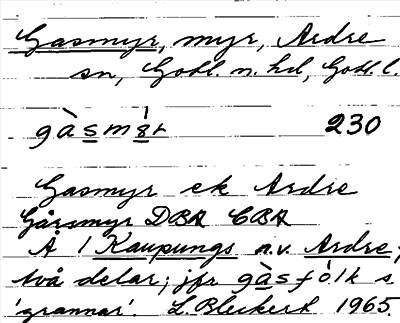 Gasmyr, myr, Ardre
sn, Gotl. n. hd, Gotl. l.
gàsmɜr 230
Gasmyr ek Ardre
Gårsmyr DBA CBA
Å / Kaupungs n.v. Ardre;
två delar; jfr gàsfòlk s
'grannar'. L. Bleckert 1965.